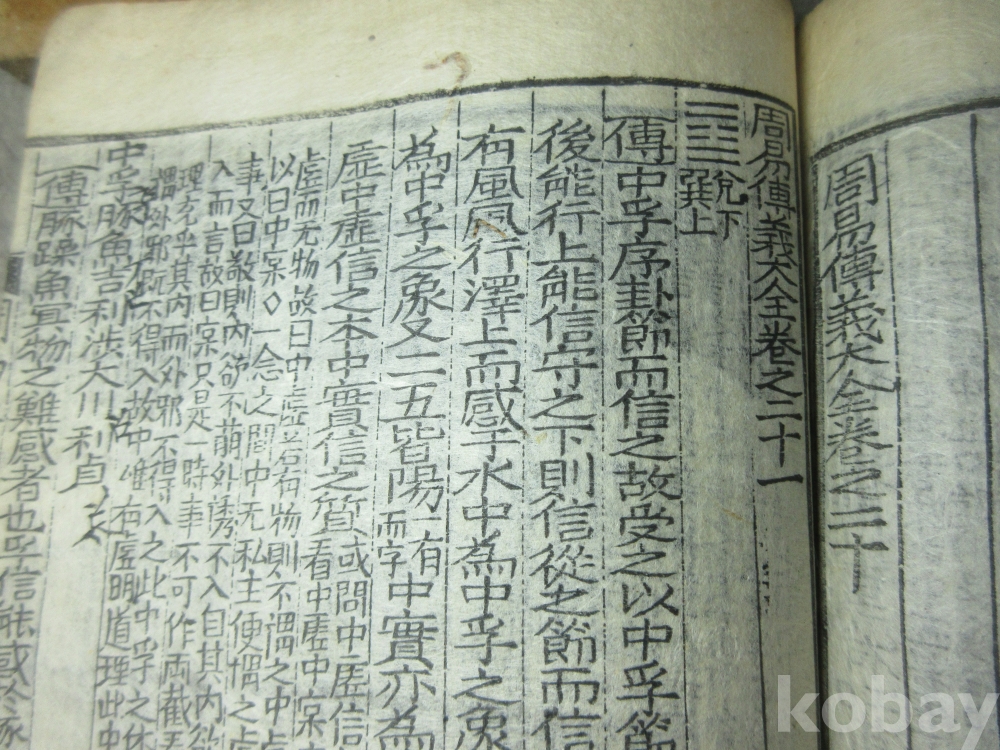 周易傳義大全卷之二十
周易傳義大全卷之二十一
兌下
巽上
傳中孚序卦節而信之故受之以中孚節
後能行上能信守之下則信從之節而信
有風風行澤上而感于水中為中孚之象
為中孚之象又二五皆陽 一有而字 中實亦為
虛中虛信之本中實信之質 或問中虛信
看中虛中实
虛而无物故曰中虛若有物則不謂之中虛
以曰中宲○一念之間中无私主便謂之虛
事又曰敬則內欲不萌外誘不入自其內欲
入而言故曰宲只是一時事不可作兩截看
理充乎其內而外邪不得入之此中孚之
不得入故中雖有虛明道理此中
中孚豚魚吉利涉大川利貞
傳豚躁魚冥物之難感者也孚信能感於豚
kobay